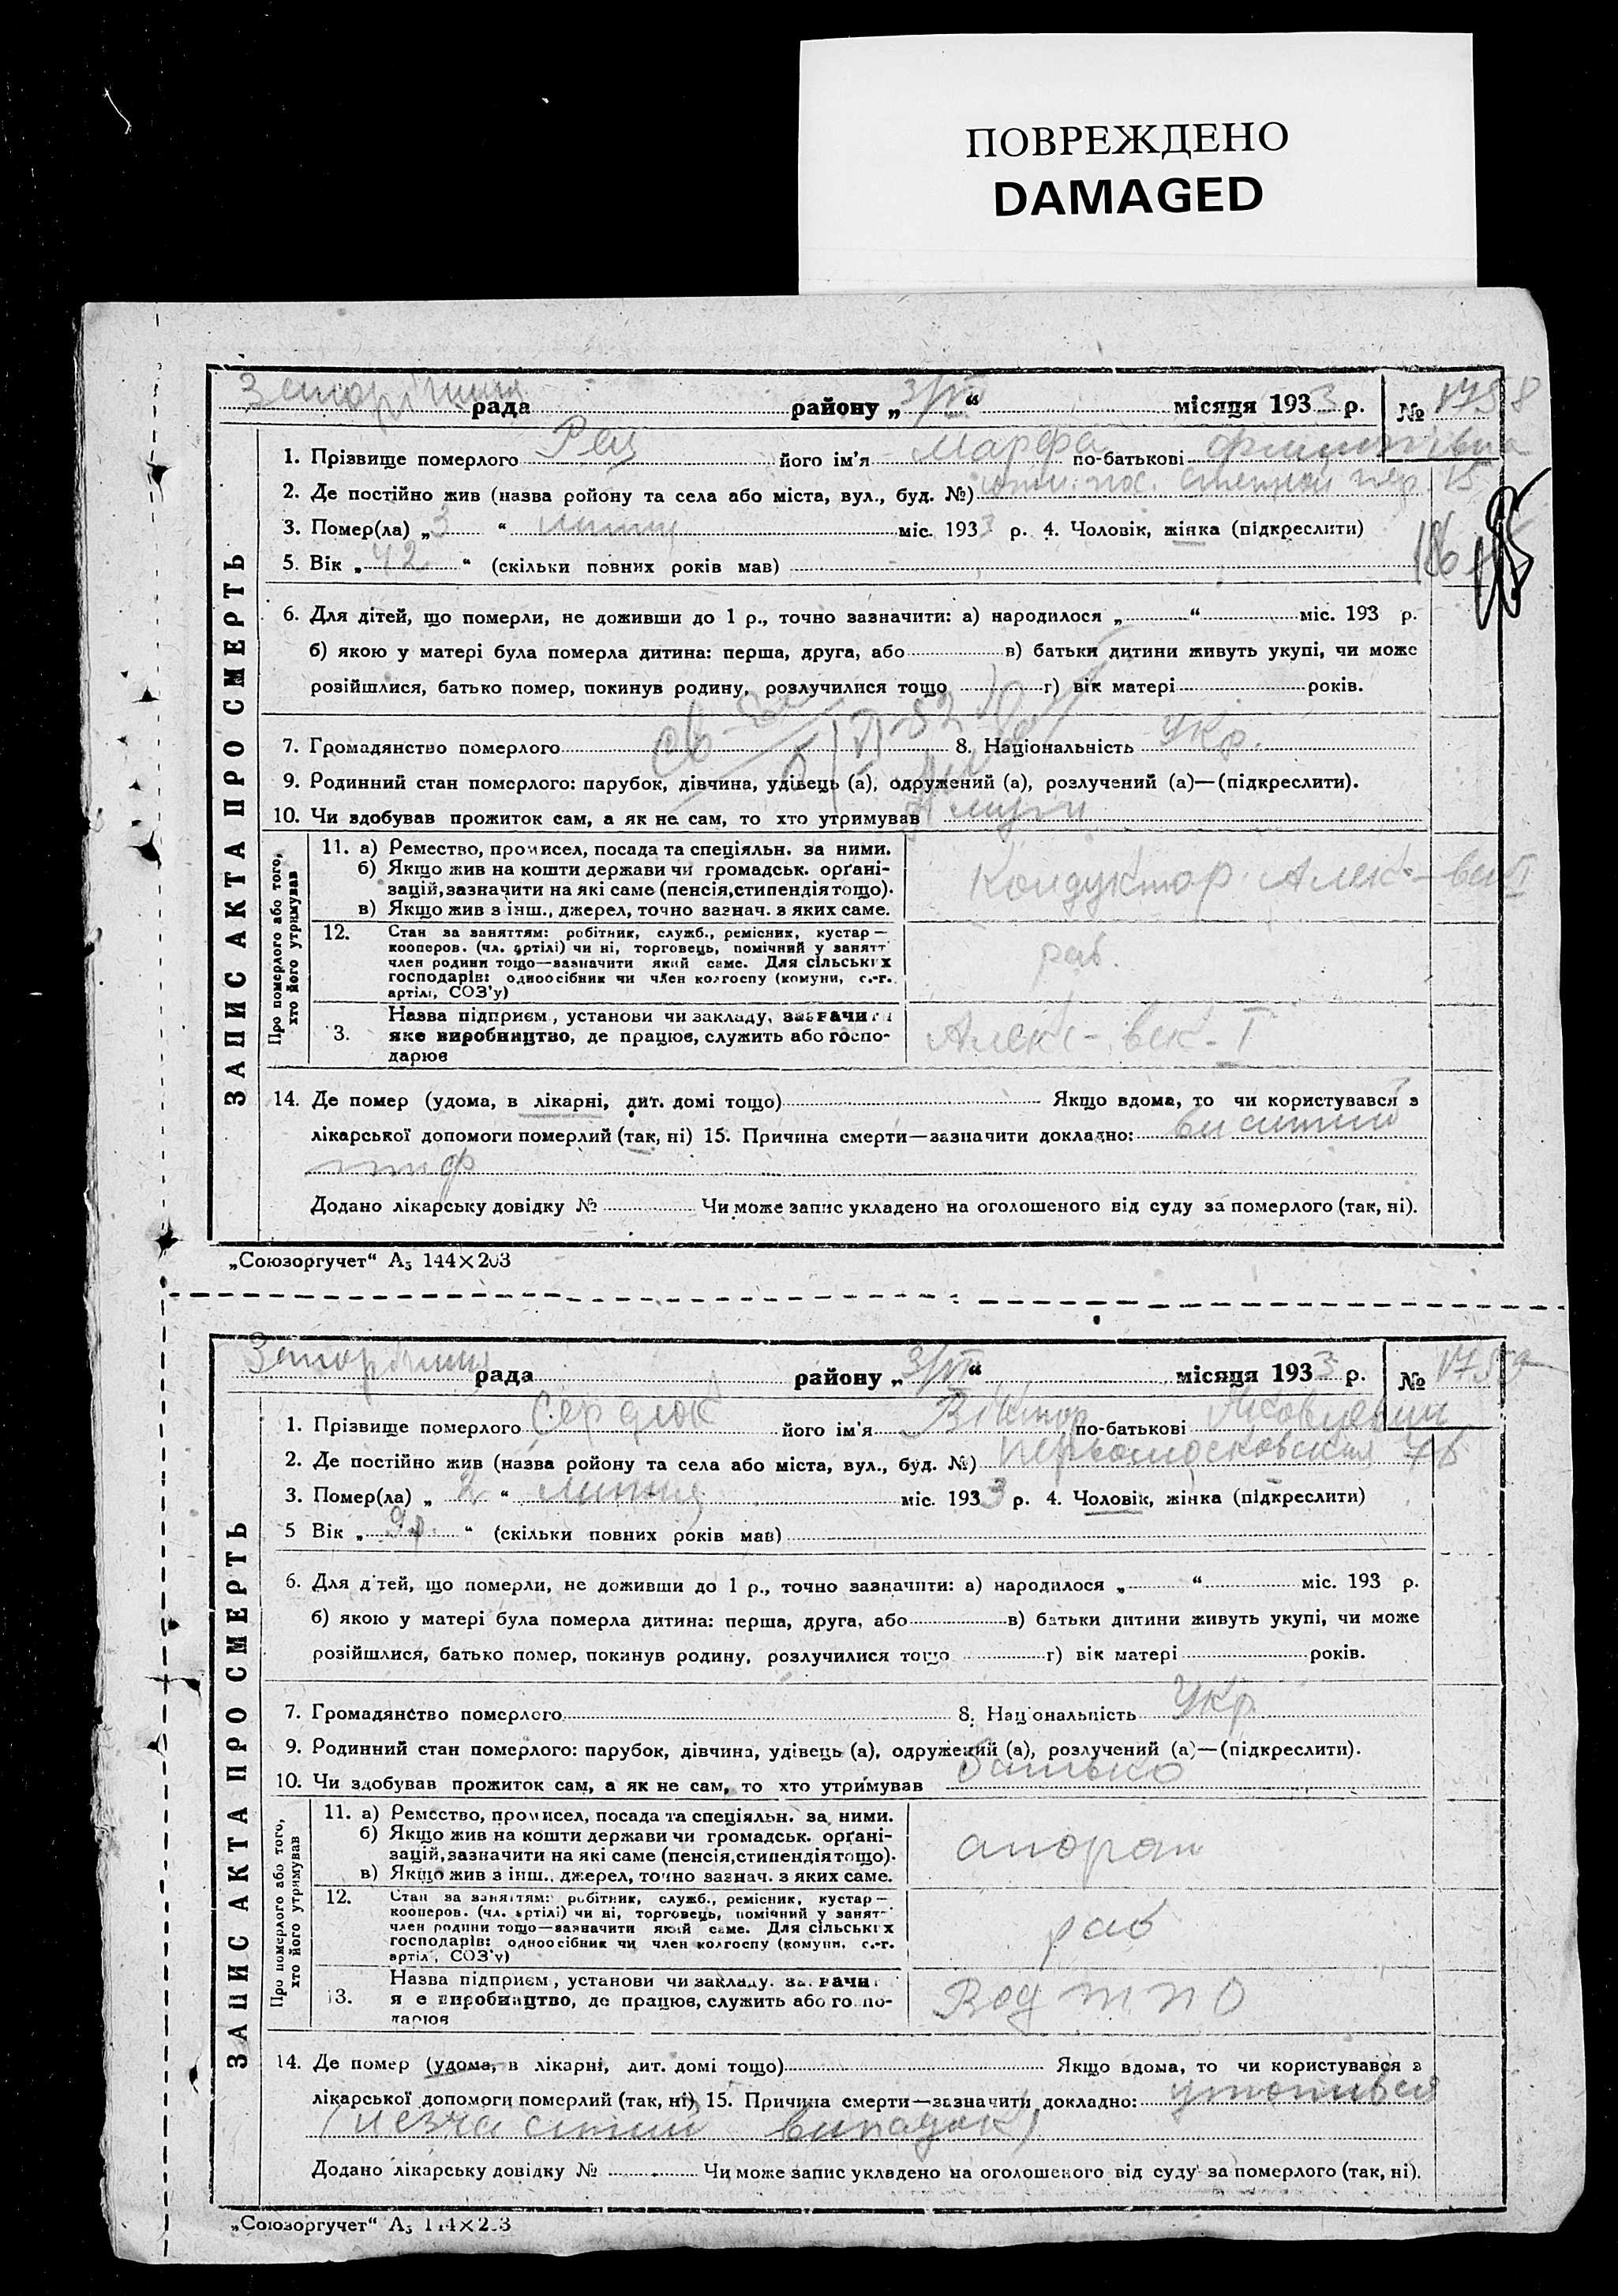 ПОВРЕЖДЕНО
DAMAGED
рада району „3/VII“ місяця 1933 р. № 1758
1. Прізвище померлого його ім’я Марфа по-батькові
2. Де постійно жив (назва ройону та села або міста, вул., буд. №) 15
3. Помер(ла) „3“ липня міс. 1933 р. 4. Чоловік, жінка (підкреслити)
5. Вік „42“ (скільки повних років мав)
6. Для дітей, що померли, не доживши до 1 р., точно зазначити: а) народилося „ “ міс. 193 р.
б) якою у матері була померла дитина: перша, друга, або в) батьки дитини живуть укупі, чи може
розійшлися, батько помер, покинув родину, розлучилися тощо г) вік матері років.
7. Громадянство померлого 8. Національність Укр.
9. Родинний стан померлого: парубок, дівчина, удівець (а), одружений (а), розлучений (а)—(підкреслити).
10. Чи здобував прожиток сам, а як не сам, то хто утримував
ЗАПИС АКТА ПРО СМЕРТЬ
Про померлого або того, хто його утримував
11. а) Ремество, промисел, посада та спеціяльн. за ними.
б) Якщо жив на кошти держави чи громадськ. орґані-
зацій, зазначити на які саме (пенсія, стипендія тощо).
в) Якщо жив з інш., джерел, точно зазнач. з яких саме.
Кондуктор Алек-
12. Стан за заняттям: робітник, служб., ремісник, кустар—
кооперов. (чл. артілі) чи ні, торговець, помічний у занятт
член родини тощо—зазначити який саме. Для сільських
господарів: одноосібник чи член колгоспу (комуни, с.-г.
артілі, СОЗ’у)
раб.
3. Назва підприєм, установи чи закладу, зазначити
яке виробництво, де працює, служить або госпо-
дарює
Алекс-век-I
14. Де помер (удома, в лікарні, дит. домі тощо) Якщо вдома, то чи користувався з
лікарської допомоги померлий (так, ні) 15. Причина смерти—зазначити докладно: висипний
тиф
Додано лікарську довідку № Чи може запис укладено на оголошеного від суду за померлого (так, ні).
„Союзоргучет“ А₅ 144×203
рада району „3/VII“ місяця 1933 р. № 1759
1. Прізвище померлого Сердюк його ім’я Віктор по-батькові
2. Де постійно жив (назва ройону та села або міста, вул., буд. №)
3. Помер(ла) „2“ липня міс. 1933 р. 4. Чоловік, жінка (підкреслити)
5 Вік „9р.“ (скільки повних років мав)
6. Для дітей, що померли, не доживши до 1 р., точно зазначити: а) народилося „ “ міс. 193 р.
б) якою у матері була померла дитина: перша, друга, або в) батьки дитини живуть укупі, чи може
розійшлися, батько помер, покинув родину, розлучилися тощо г) вік матері років.
7. Громадянство померлого 8. Національність Укр
9. Родинний стан померлого: парубок, дівчина, удівець (а), одружений (а), розлучений (а)—(підкреслити).
10. Чи здобував прожиток сам, а як не сам, то хто утримував батько
ЗАПИС АКТА ПРО СМЕРТЬ
Про померлого або того, хто його утримував
11. а) Ремество, промисел, посада та спеціяльн. за ними.
б) Якщо жив на кошти держави чи громадськ. орґані-
зацій, зазначити на які саме (пенсія, стипендія тощо).
в) Якщо жив з інш., джерел, точно зазнач. з яких саме.
12. Стан за заняттям: робітник, служб., ремісник, кустар—
кооперов. (чл. артілі) чи ні, торговець, помічний у занят-
член родини тощо—зазначити який саме. Для сільських
господарів: одноосібник чи член колгоспу (комуни, с.-г.
артілі, СОЗ’у)
раб
13. Назва підприєм, установи чи закладу, зазначи
яке виробництво, де працює, служить або госпо-
дарює
14. Де помер (удома, в лікарні, дит. домі тощо) Якщо вдома, то чи користувався з
лікарської допомоги померлий (так, ні) 15. Причина смерти—зазначити докладно: утопився
(незчастний випадок)
Додано лікарську довідку № Чи може запис укладено на оголошеного від суду за померлого (так, ні).
„Союзоргучет“ А₅ 144×203